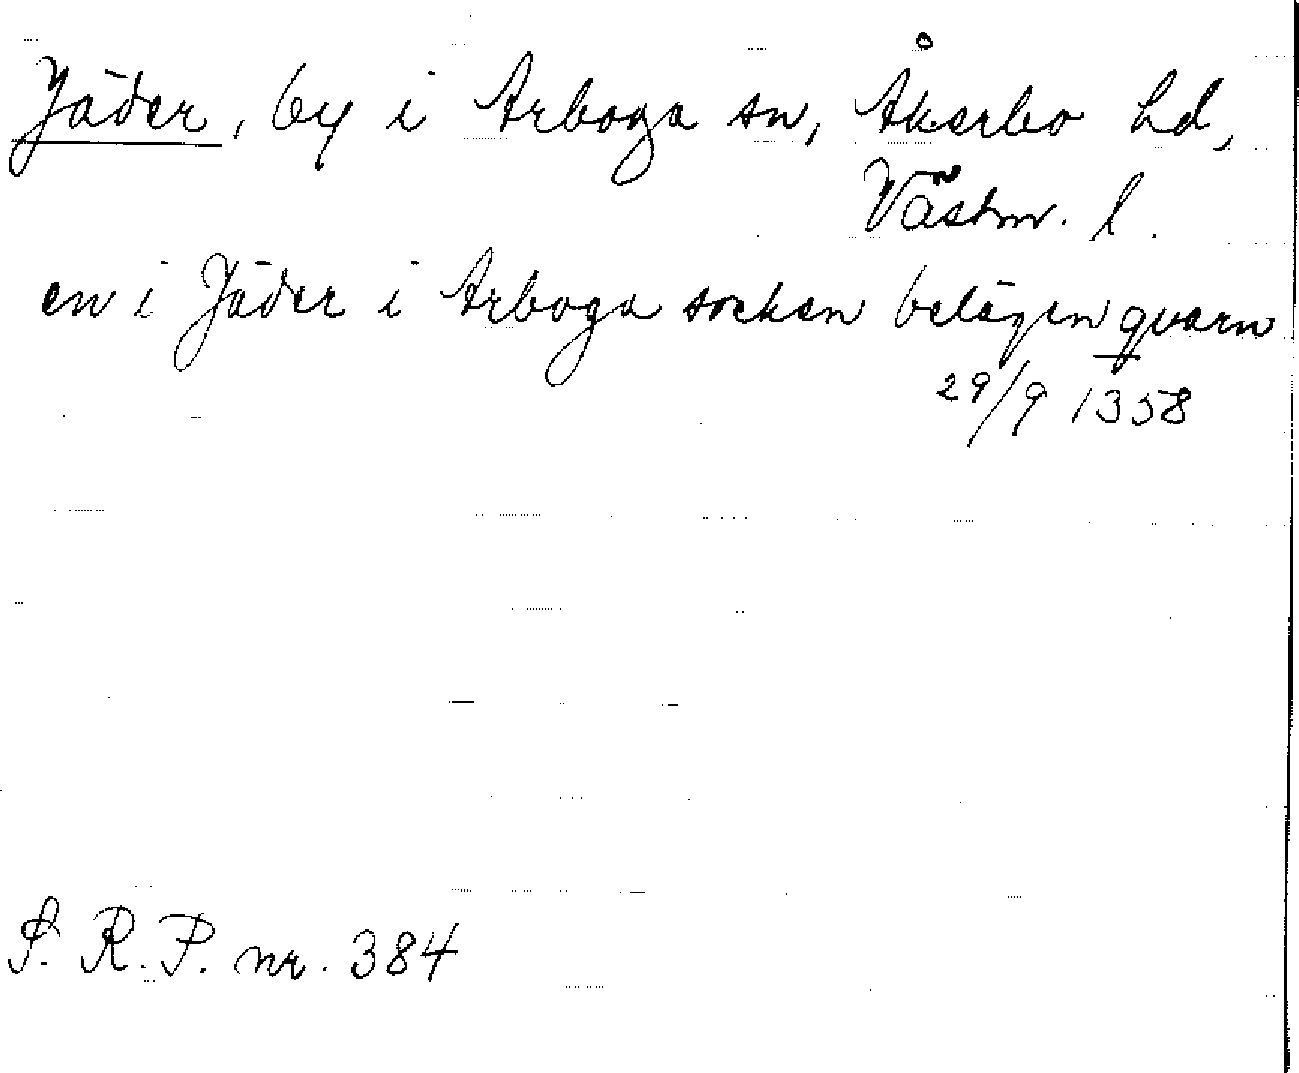 Jäder, by i Arboga sn, Åkerbo hd,
Västm. l.
en i Jäder i Arboga socken belägen qvarn
29/9 1358
S. R. P. nr. 384